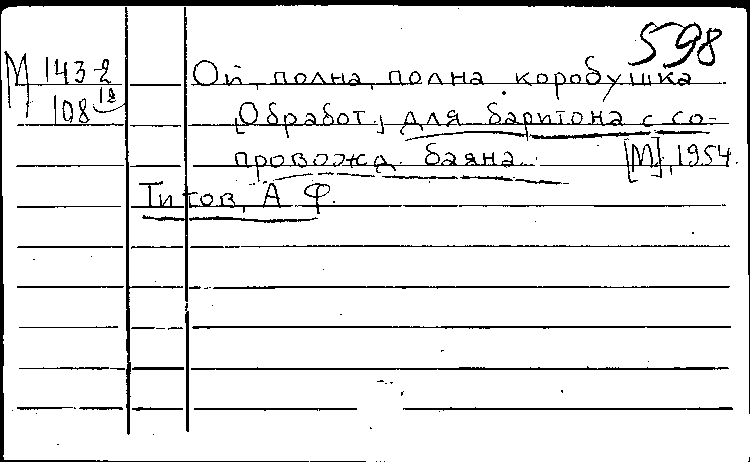 598
М 143-2
108 18
Ой, полна, полна коробушка
[Обработ.] для баритона с со-
провожд. баяна. [М], 1954.
Титов, А. Ф.